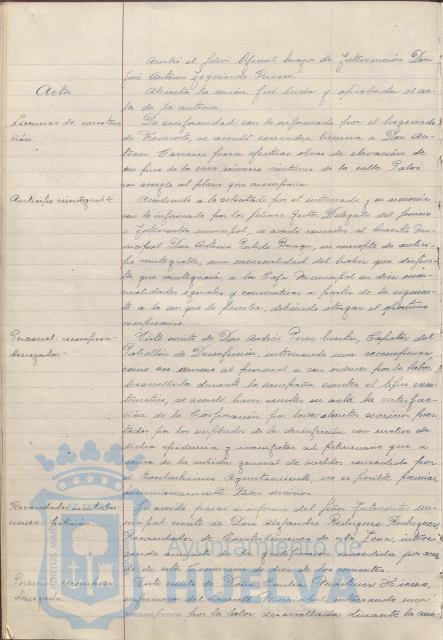 Asistió el Señor Oficial Mayor de Intervención Don
José Antonio Izquierdo
Acta
Abierta la sesión fué leída y aprobada el ac-
ta de la anterior.
Licencias de construc-
ción.
De conformidad con lo informado por el Negociado
de Fomento, se acordó conceder licencia a Don An-
tonio para efectuar obras de elevación de
un piso de la casa número de la calle Palos
con arreglo al plano que acompaña.
Anticipo reintegrable
Accediendo a lo solicitado por el interesado y en armonía
con lo informado por los Señores Gestor Delegado del
e Interventor municipal, se acordó conceder al Mu-
nicipal Don Antonio en concepto de antici-
po reintegrable, una mensualidad del haber que disfru-
ta que reintegrará a la Caja Municipal en diez men-
sualidades iguales y consecutivas a partir de la siguien-
te a la en que lo perciba, debiendo otorgar el oportuno
compromiso.
Personal: recompensa
denegada.
Visto escrito de Don Andrés Capataz del
Pabellón de Desinfección, interesando una recompensa
para el personal a sus órdenes por la labor
desarrollada durante la campaña contra el tifus exan-
temático, se acordó hacer constar en acta la satisfac-
ción de la Corporación por los excelentes servicios pres-
tados por los empleados de la desinfección con motivo de
dicha epidemia y manifestar al peticionario que a
causa de la subida general de sueldos concedida por
el Excelentísimo Ayuntamiento, no es posible premiar
extraordinariamente tales servicios.
Recaudador de contribu-
ciones: petición
Se acordó pasar a informe del Señor Interventor mu-
nicipal escrito de Don Alejandro Rodríguez Rodríguez,
Recaudador de Contribuciones de esta Zona, intere-
sando concedida por acuer-
do de esta Comisión de diez de los corrientes.
Personal: recompensa
denegada.
Visto escrito de Doña Emilia Martínez
enfermera del Municipal, interesando una
recompensa por la labor desarrollada durante la cam-
Ayuntamiento de
HUELVA
PORTUS MARIS